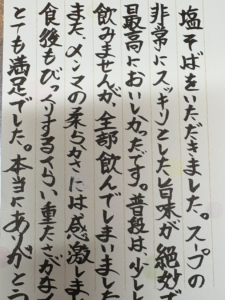 塩そばをいただきました。スープの
非常にスッキリとした旨味が絶妙で
最高においしかったです。普段は少し
飲みませんが、全部飲んでしまいました
また、メンマの柔らかさには感激しま
食後もびっくりするくらい、重たさがな
とても満足でした。本当にありがと